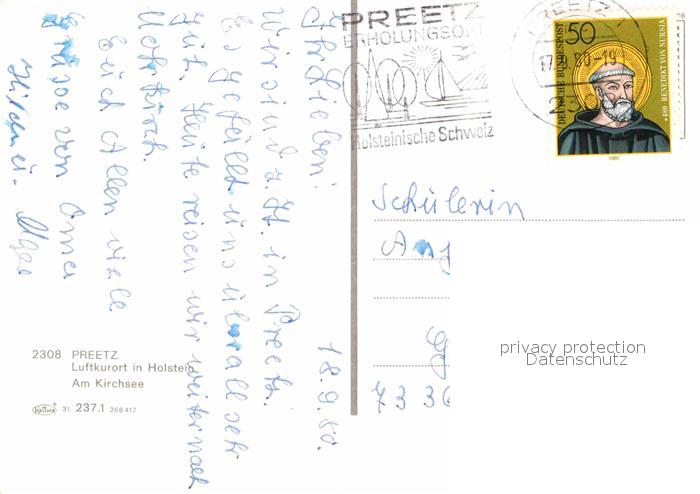 18.9.80.
Ihr Lieben!
Wir sind z. Zt. in Preetz.
Es gefällt uns überall sehr
gut. Heute reisen wir weiter nach
Euch Allen viele
Grüsse von Oma
PREETZ
ERHOLUNGSORT
Holsteinische Schweiz
PREETZ
80-19
50
DEUTSCHE BUNDESPOST
*480 BENEDIKT VON NURSIA
1980
Schülerin
privacy protection
Datenschutz
2308 PREETZ
Luftkurort in Holstein
Am Kirchsee
Krüger 31. 237.1 268417